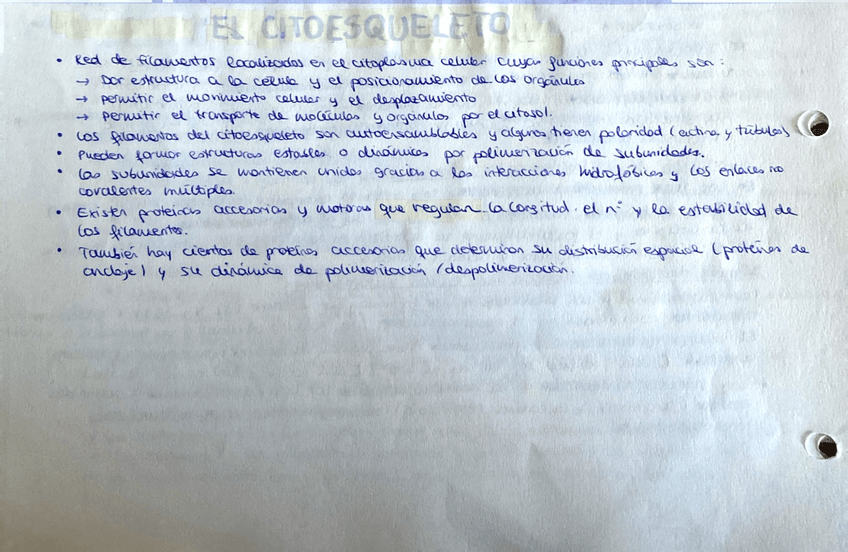 EL CITOESQUELETO
• Red de filamentos localizados en el citoplasma celular cuyas funciones principales son:
→ Dar estructura a la célula y el posicionamiento de los orgánulos
→ permitir el movimiento celular y el desplazamiento
→ Permitir el transporte de moléculas y orgánulos por el citosol.
• Los filamentos del citoesqueleto son autoensamblables y algunos tienen polaridad (actina y túbulos)
• Pueden formar estructuras estables o dinámicas por polimerización de subunidades.
• Las subunidades se mantienen unidas gracias a las interacciones hidrofóbicas y los enlaces no
covalentes múltiples.
• Existen proteínas accesorias y motoras que regulan la longitud, el nº y la estabilidad de
los filamentos.
• También hay cientos de proteínas accesorias que determinan su distribución espacial (proteínas de
anclaje) y su dinámica de polimerización / despolimerización.